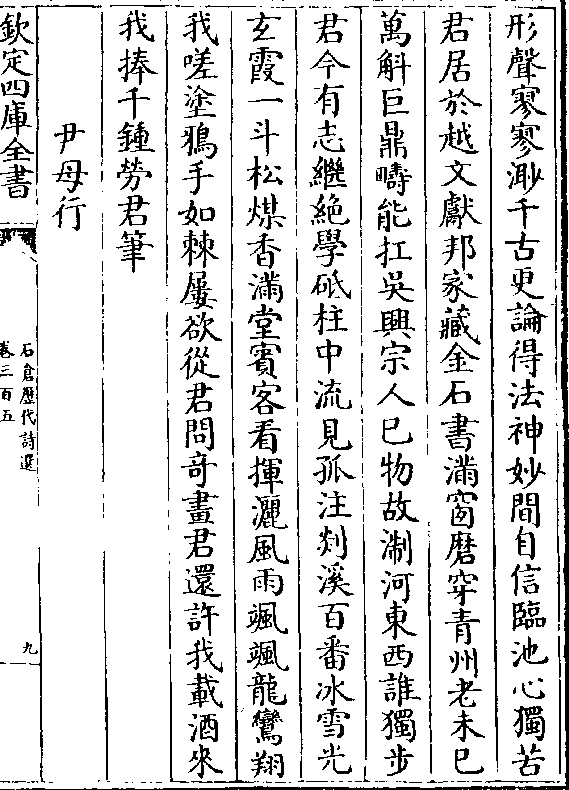 形聲寥寥渺千古更論得法神妙間自信臨池心獨苦
君居於越文獻邦家藏金石書滿窗磨穿青州老未已
萬斛巨鼎疇能扛吳興宗人已物故淛河東西誰獨步
君今有志繼絶學砥柱中流見孤注剡溪百番冰雪光
玄霞一斗松煤香滿堂賓客看揮灑風雨颯颯龍鸞翔
我嗟塗鴉手如棘屢欲從君問奇畫君還許我載酒來
我捧千鍾勞君筆
尹母行
欽定四庫全書
石倉歷代詩選
卷三百五
九